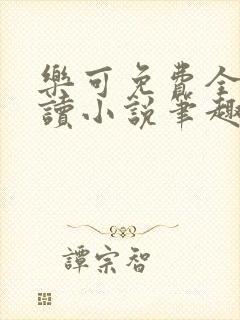 樂可免費全
讀小說筆趣
譚宗智